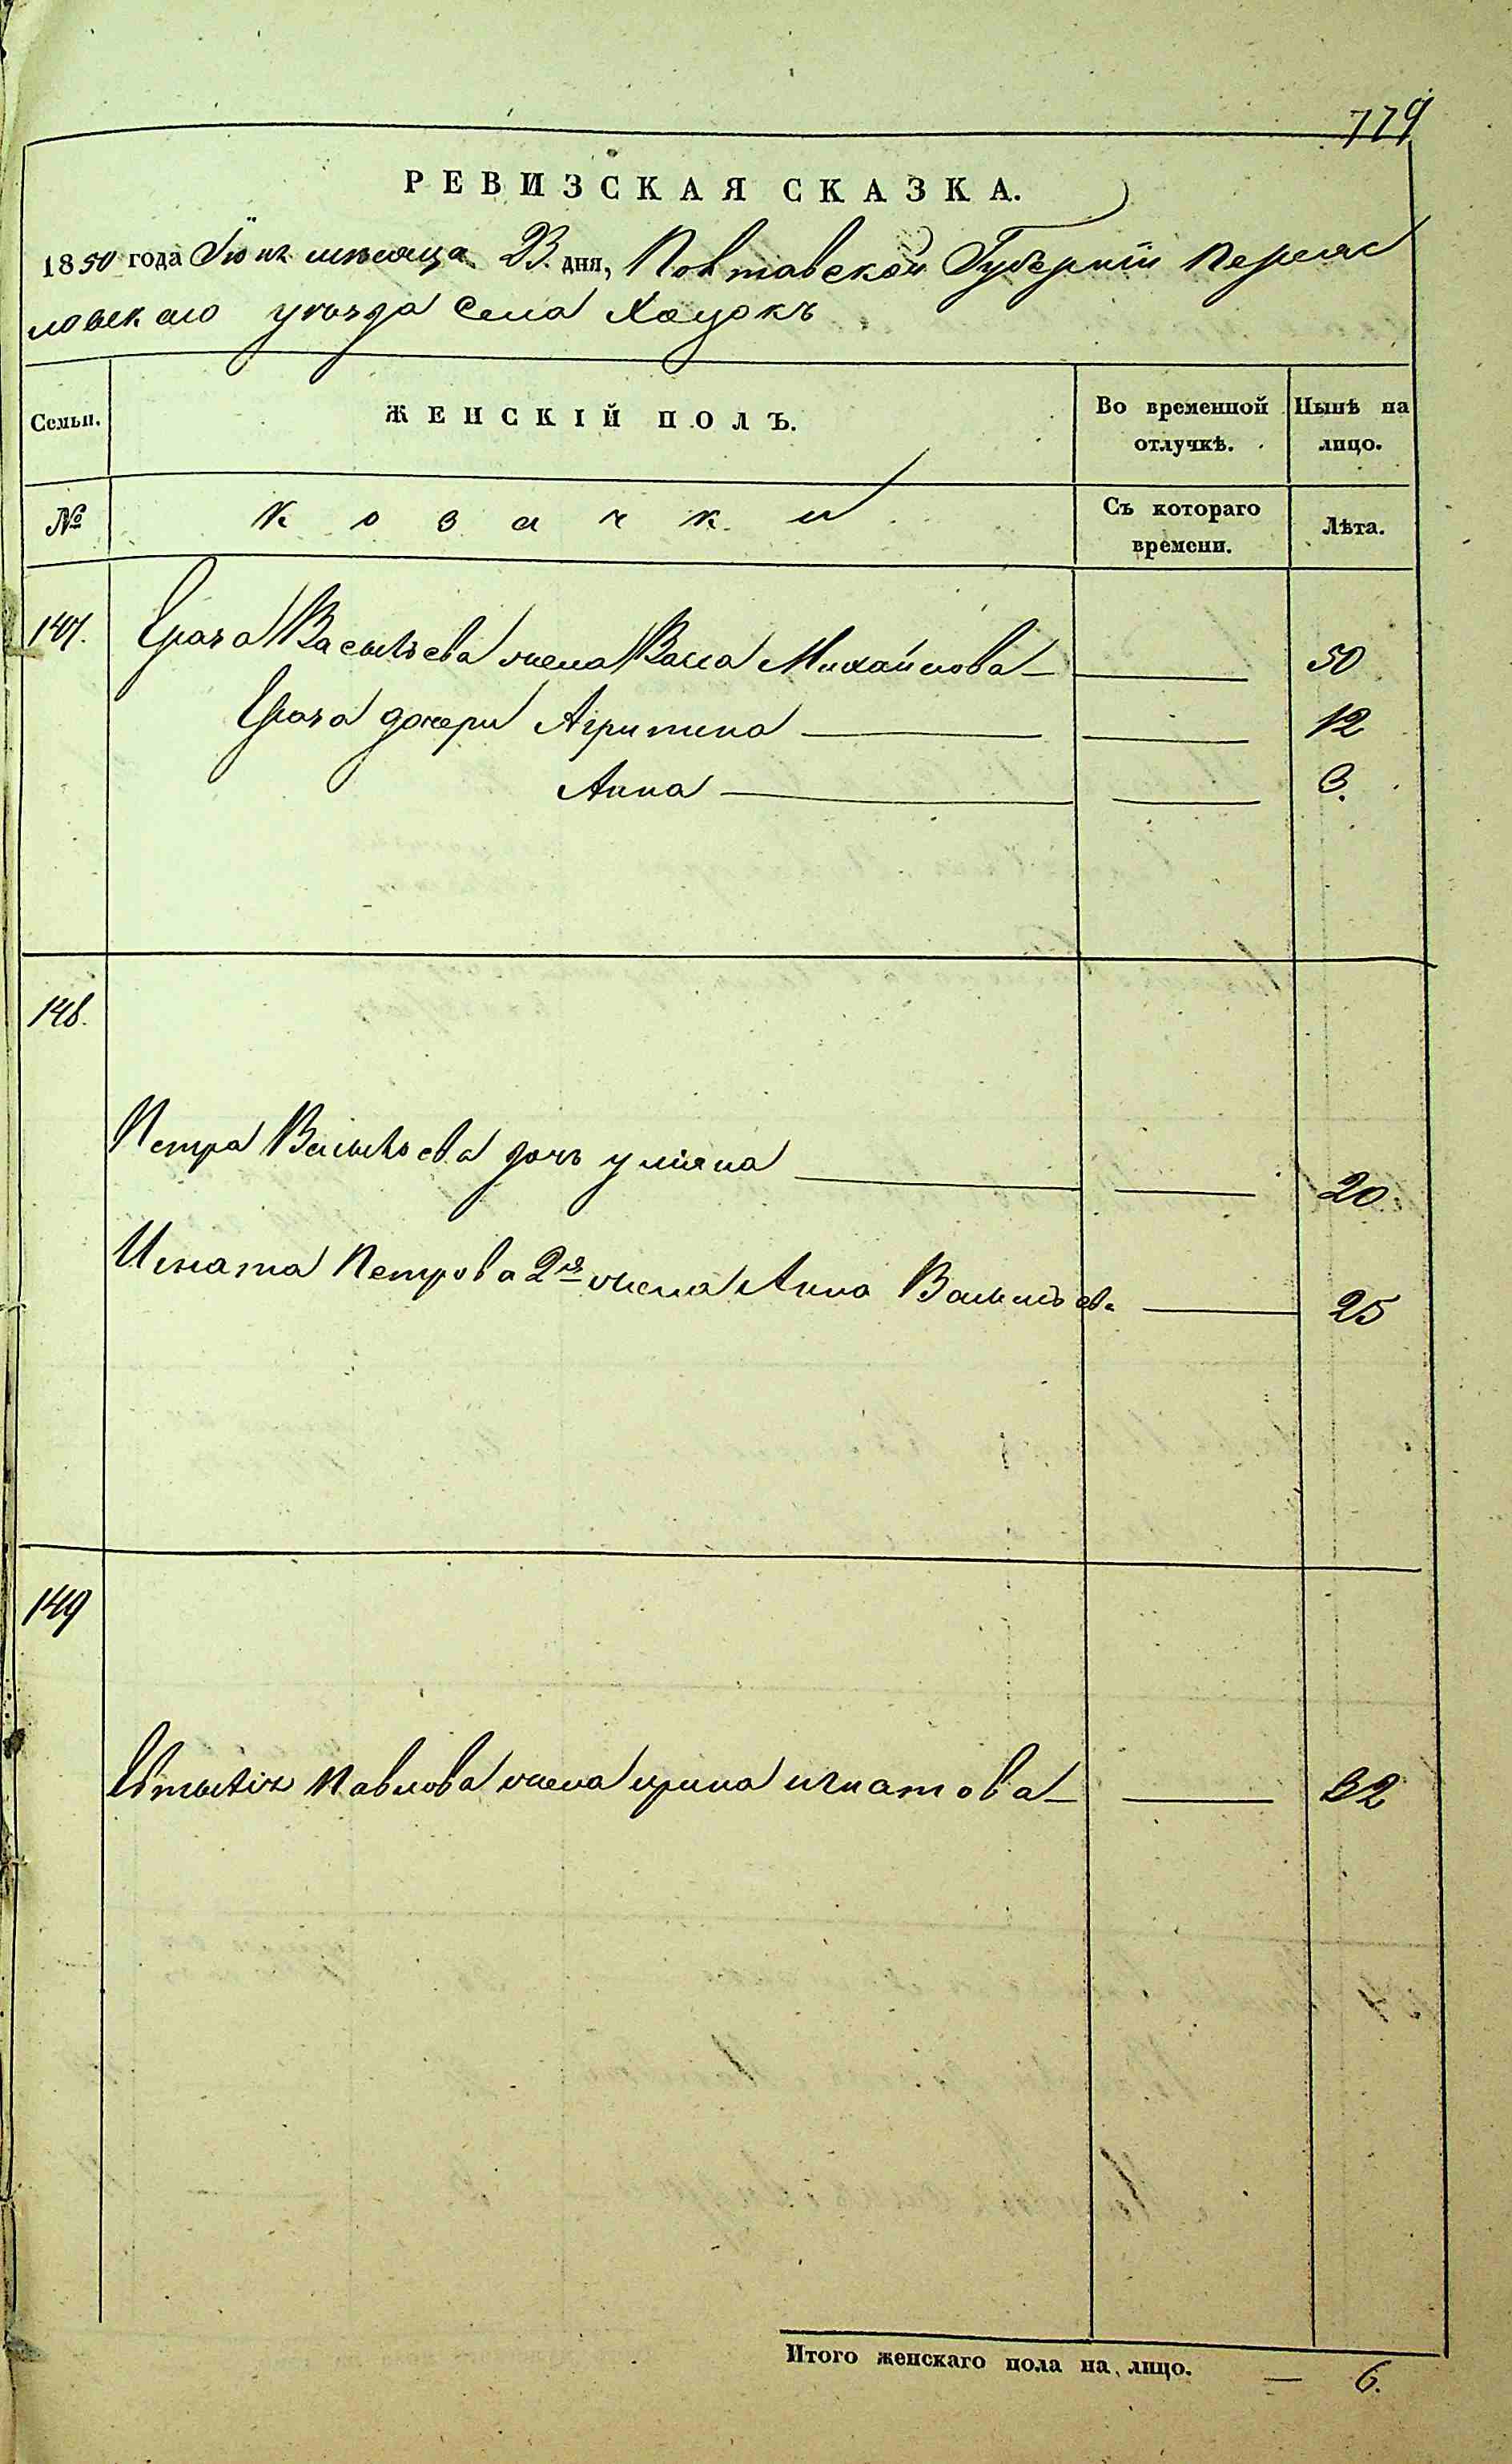 779
РЕВИЗСКАЯ СКАЗКА.
1850 года Іюня мѣсяца 23 дня, Полтавской Губерніи Переяс
ловскаго уѣзда Села Хоцокъ
Семьи.
ЖЕНСКІЙ ПОЛЪ.
Во временной отлучкѣ.
Нынѣ на лицо.
№
козачки
Съ котораго времени.
Лѣта.
147. Васильева жена Васса Михайлова 50
дочери Агрипина 12
Анна 3.
148.
Петра Васильева дочь улiяна 20
Игната Петрова 2я жена Анна Васильева 25
149
Евтихія Павлова жена ирина игнатова 32
Итого женскаго пола на лицо. — 6.